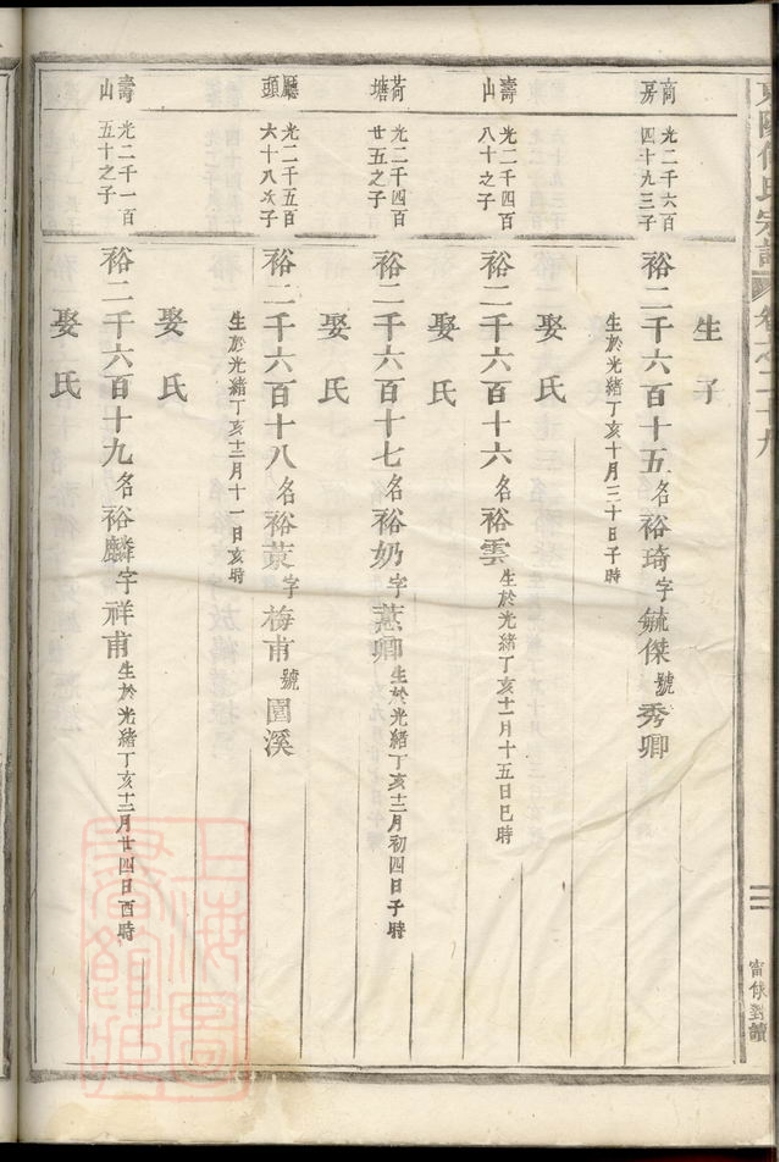 生子
商房
光二千六百
四十九三子
裕二千六百十五名裕琦字毓傑號秀卿
生於光緒丁亥十月三十日子時
娶氏
壽山
光二千四百
八十之子
裕二千六百十六名裕雲生於光緒丁亥十一月十五日巳時
娶氏
荷塘
光二千四百
廿五之子
裕二千六百十七名裕奶字燕卿生於光緒丁亥十二月初四日子時
娶氏
廳頭
光二千五百
六十八次子
裕二千六百十八名裕字梅甫號園溪
生於光緒丁亥十二月十一日亥時
娶氏
壽山
光二千一百
五十之子
裕二千六百十九名裕麟字祥甫生於光緒丁亥十二月廿四日酉時
娶氏
上海圖書館藏